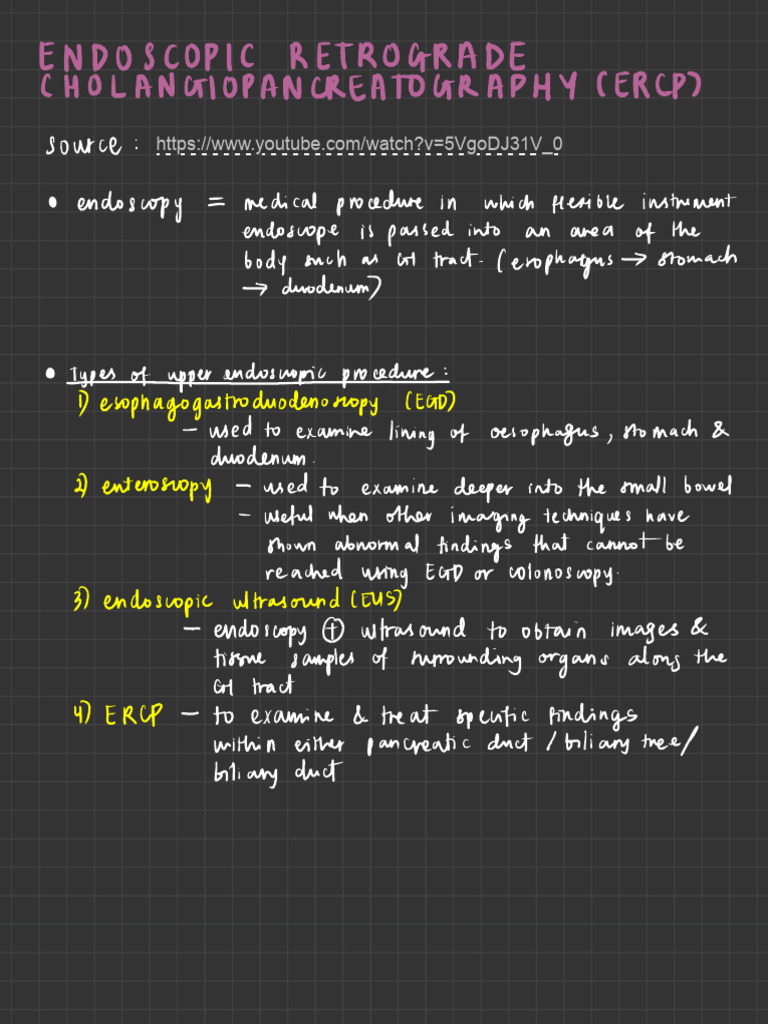 ENDOSCOPIC RETROGRADE
CHOLANGIOPANCREATOGRAPHY (ERCP)
source : https://www.youtube.com/watch?v=5VgoDJ31V_0
• endoscopy = medical procedure in which flexible instrument
endoscope is passed into an area of the
body such as GI tract. (esophagus → stomach
→ duodenum)
• Types of upper endoscopic procedure :
1) esophagogastroduodenoscopy (EGD)
- used to examine lining of oesophagus, stomach &
duodenum.
2) enteroscopy - used to examine deeper into the small bowel
- useful when other imaging techniques have
shown abnormal findings that cannot be
reached using EGD or colonoscopy.
3) endoscopic ultrasound (EUS)
- endoscopy ⊕ ultrasound to obtain images &
tissue samples of surrounding organs along the
GI tract
4) ERCP - to examine & treat specific findings
within either pancreatic duct / biliary tree/
biliary duct